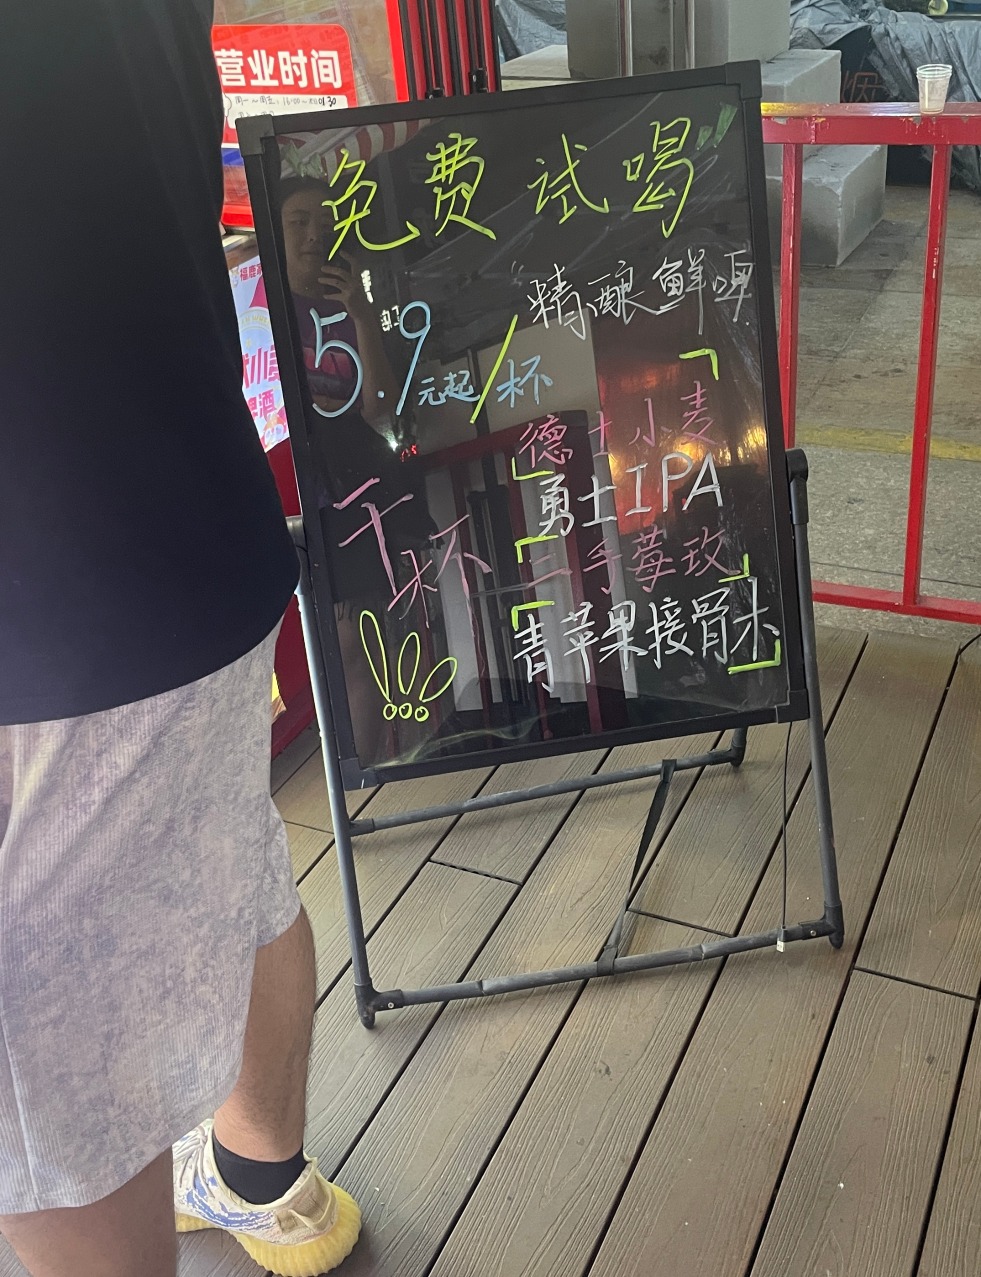 营业时间
周一~周五: 16:00~01:30
免费试喝
精酿鲜啤
5.9元起/杯
德士小麦
勇士IPA
二手莓玫
青苹果接骨木
干杯
!!!
福鹿
小
啤酒